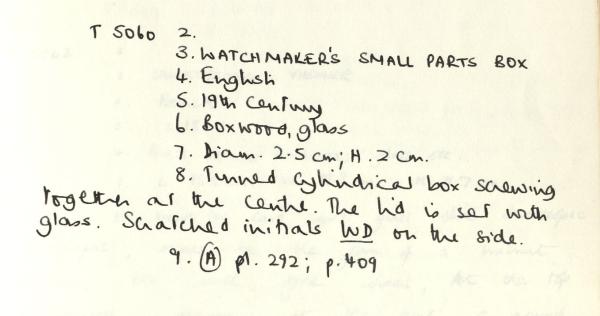 T 5060 2.
3. WATCHMAKER'S SMALL PARTS BOX
4. English
5. 19th Century
6. Boxwood, glass
7. Diam. 2.5 cm; H. 2 cm.
8. Turned cylindrical box screwing
together at the centre. The lid is set with
glass. Scratched initials WD on the side.
9. (A) pl. 292; p. 409